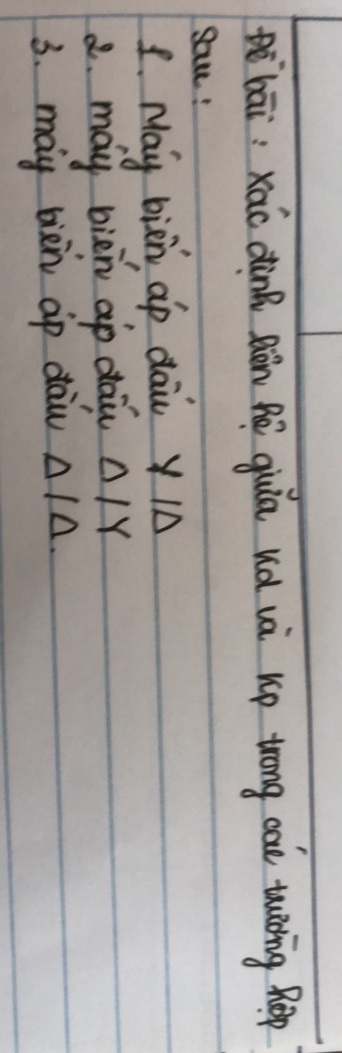 Đề bài : Xác định liên hệ giữa Kd và Kp trong các trường hợp
sau :
1. Máy biến áp đấu Y/Δ
2. máy biến áp đấu Δ/Y
3. máy biến áp đấu Δ/Δ.